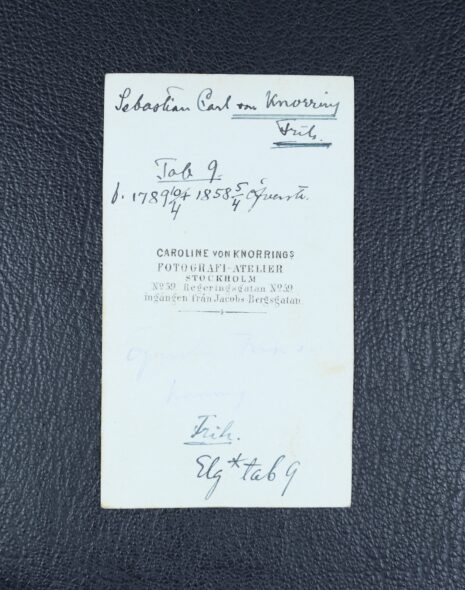 Sebastian Carl von Knorring
Frih.
Tab 9.
f. 1789 10/4 † 1858 5/4 Överste.
CAROLINE VON KNORRINGS
FOTOGRAFI-ATELIER
STOCKHOLM
No 59 Regeringsgatan No 59
ingången från Jacobs-Bergsgatan
Frih.
Elg * tab 9